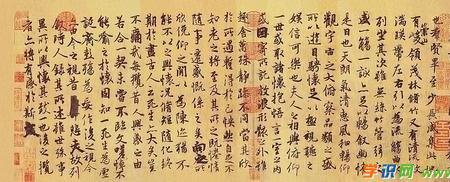 也羣賢畢至少長咸集此地
有崇山峻領茂林脩竹又有清流激
湍暎帶左右引以為流觴曲水
列坐其次雖無絲竹管弦之
盛一觴一詠亦足以暢敘幽情
是日也天朗氣清惠風和暢仰
觀宇宙之大俯察品類之盛
所以遊目騁懷足以極視聽之
娛信可樂也夫人之相與俯仰
一世或取諸懷抱悟言一室之內
或因寄所託放浪形骸之外雖
趣舍萬殊靜躁不同當其欣
於所遇暫得於己怏然自足不
知老之將至及其所之既惓情
隨事遷感慨係之矣向之所
欣俛仰之間以為陳迹猶不
能不以之興懷況脩短隨化終
期於盡古人云死生亦大矣豈
不痛哉每攬昔人興感之由
若合一契未嘗不臨文嗟悼不
能喻之於懷固知一死生為虛
誕齊彭殤為妄作後之視今
亦由今之視昔悲夫故列
敘時人錄其所述雖世殊事
異所以興懷其致一也後之攬
者亦將有感於斯
学识网